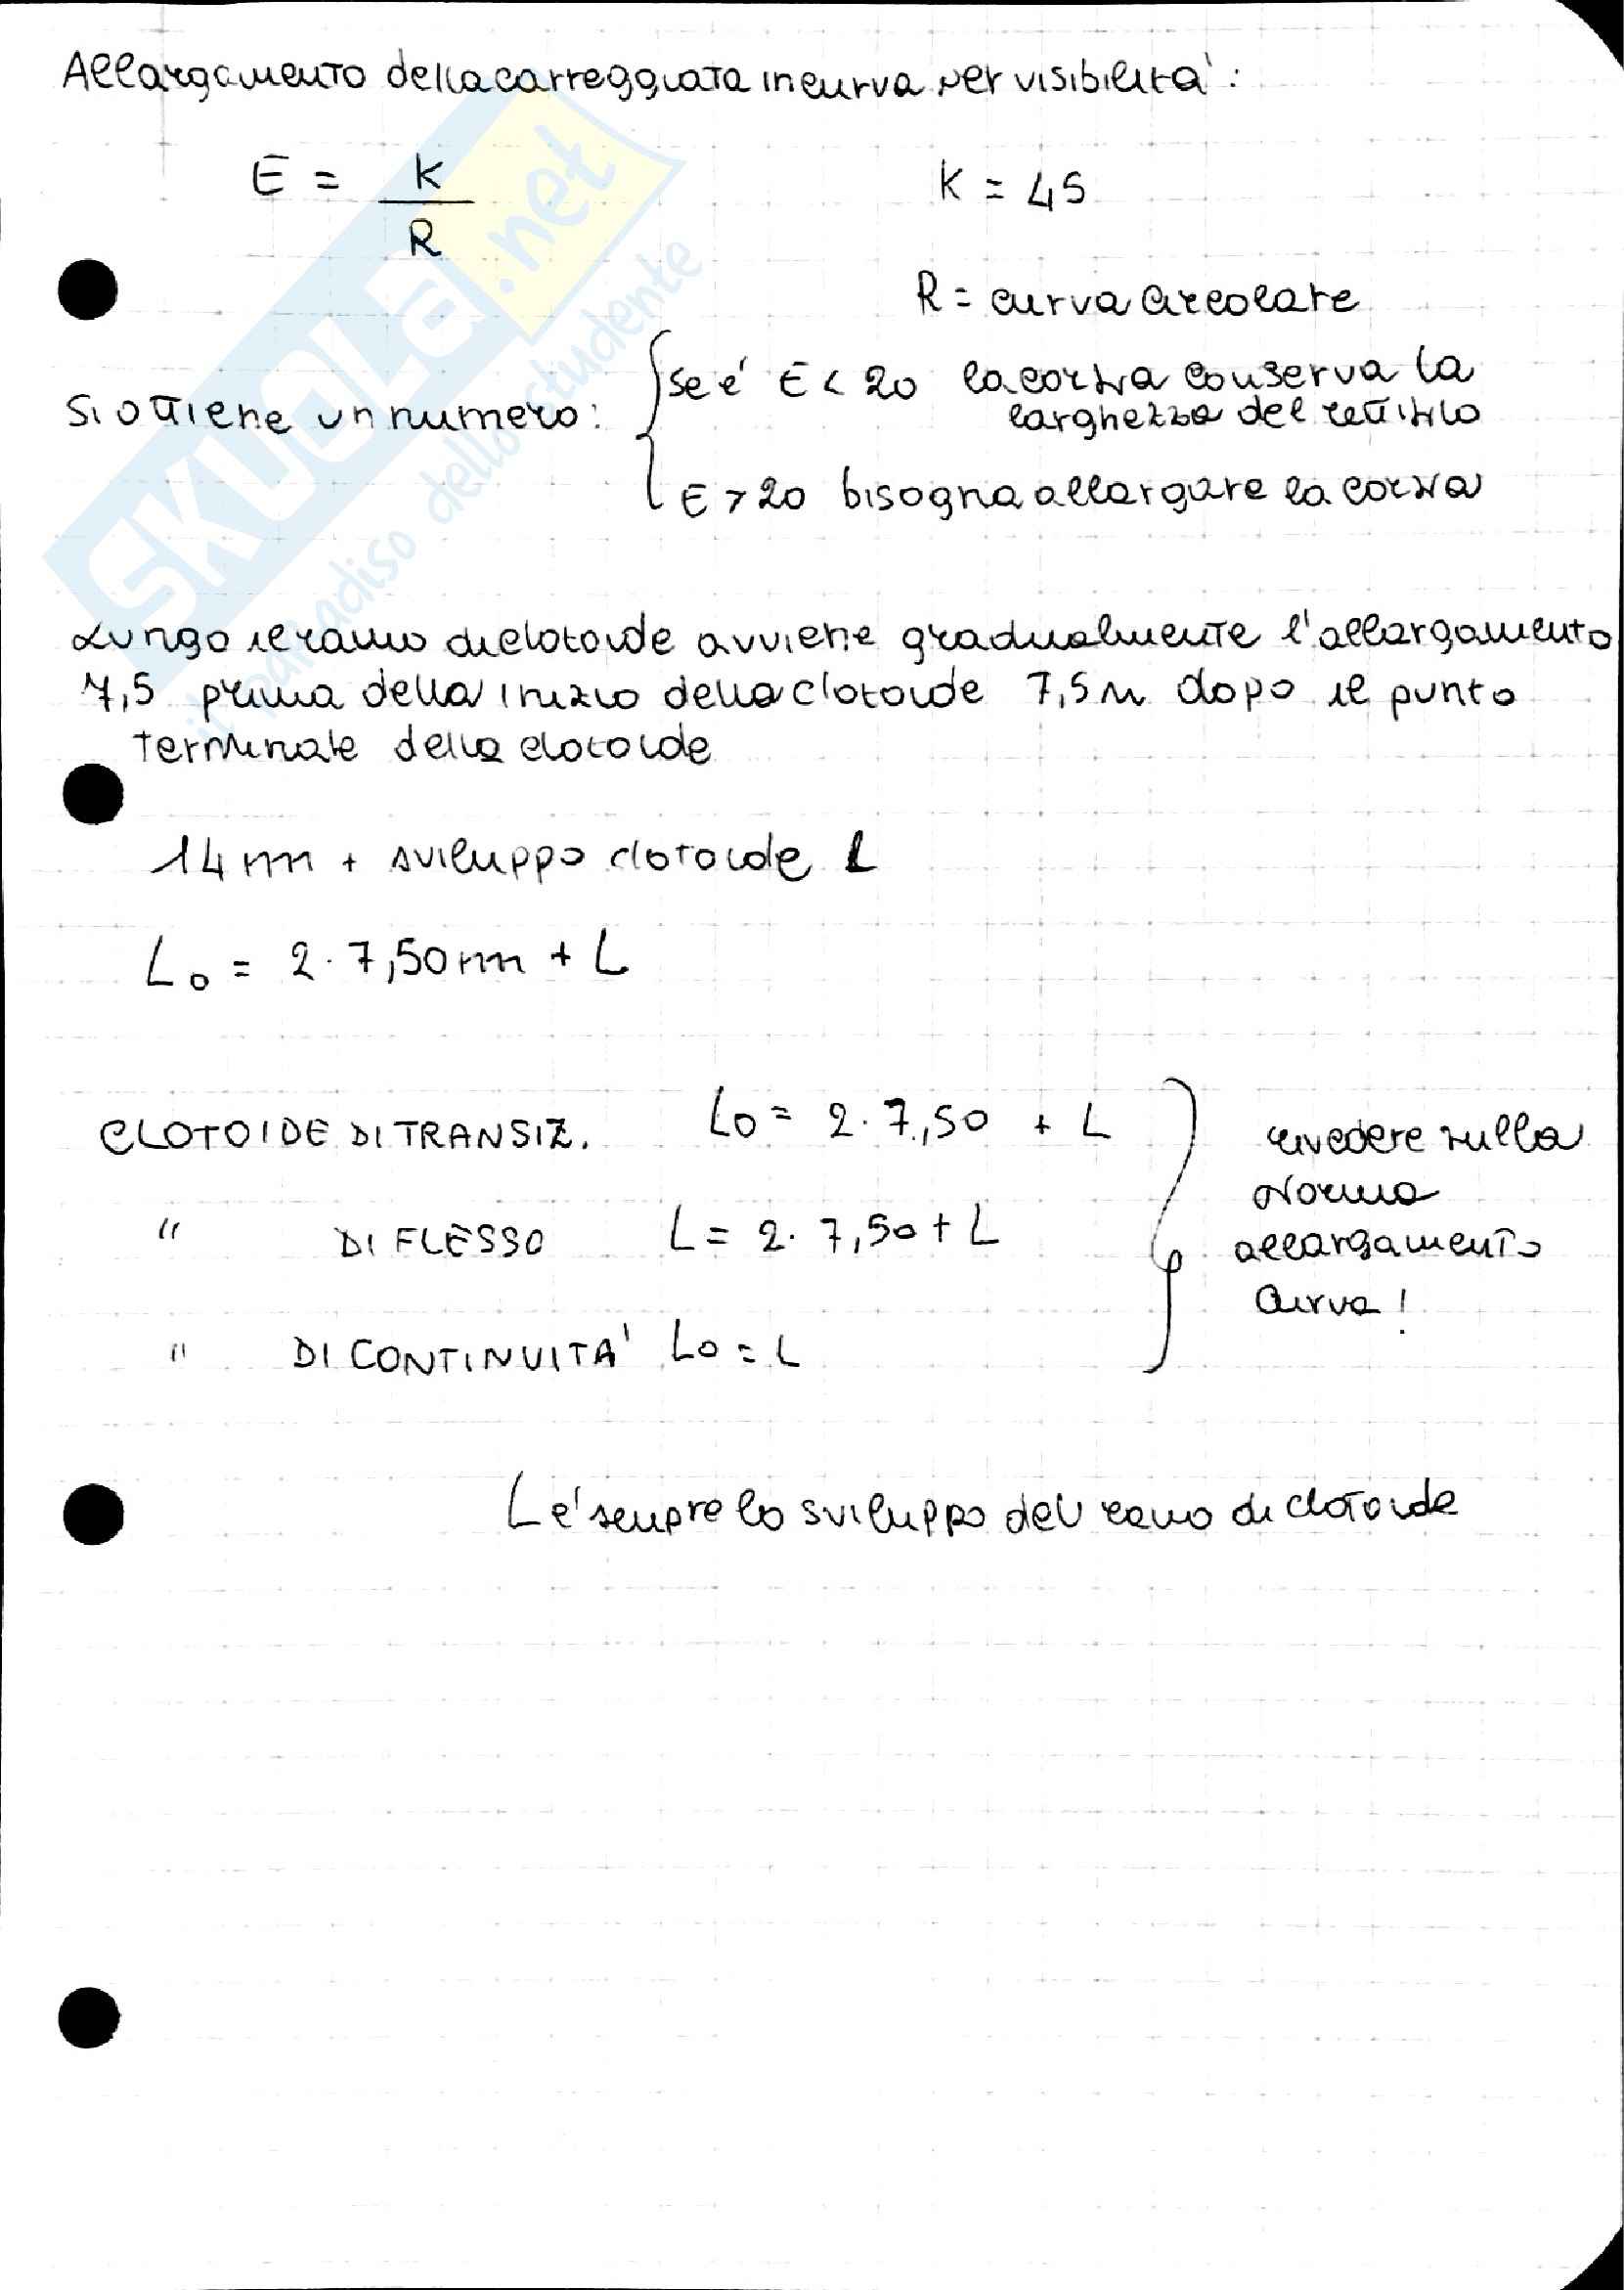 Allargamento della carreggiata in curva per visibilità:
E = K / R
K = 45
R = curva circolare
Si ottiene un numero:
se é E < 20 la corsia conserva la
larghezza del rettifilo
E > 20 bisogna allargare la corsia
Lungo il ramo di clotoide avviene gradualmente l'allargamento
7,5 prima della inizio della clotoide 7,5 m dopo il punto
terminale della clotoide
14 m + sviluppo clotoide L
L₀ = 2·7,50 m + L
CLOTOIDE DI TRANSIZ. L₀ = 2·7,50 + L
" DI FLESSO L = 2·7,50 + L
" DI CONTINUITA' L₀ = L
rivedere sulla
Norma
allargamento
curva!
L é sempre lo sviluppo del ramo di clotoide
SKUOLA.net
il paradiso dello studente